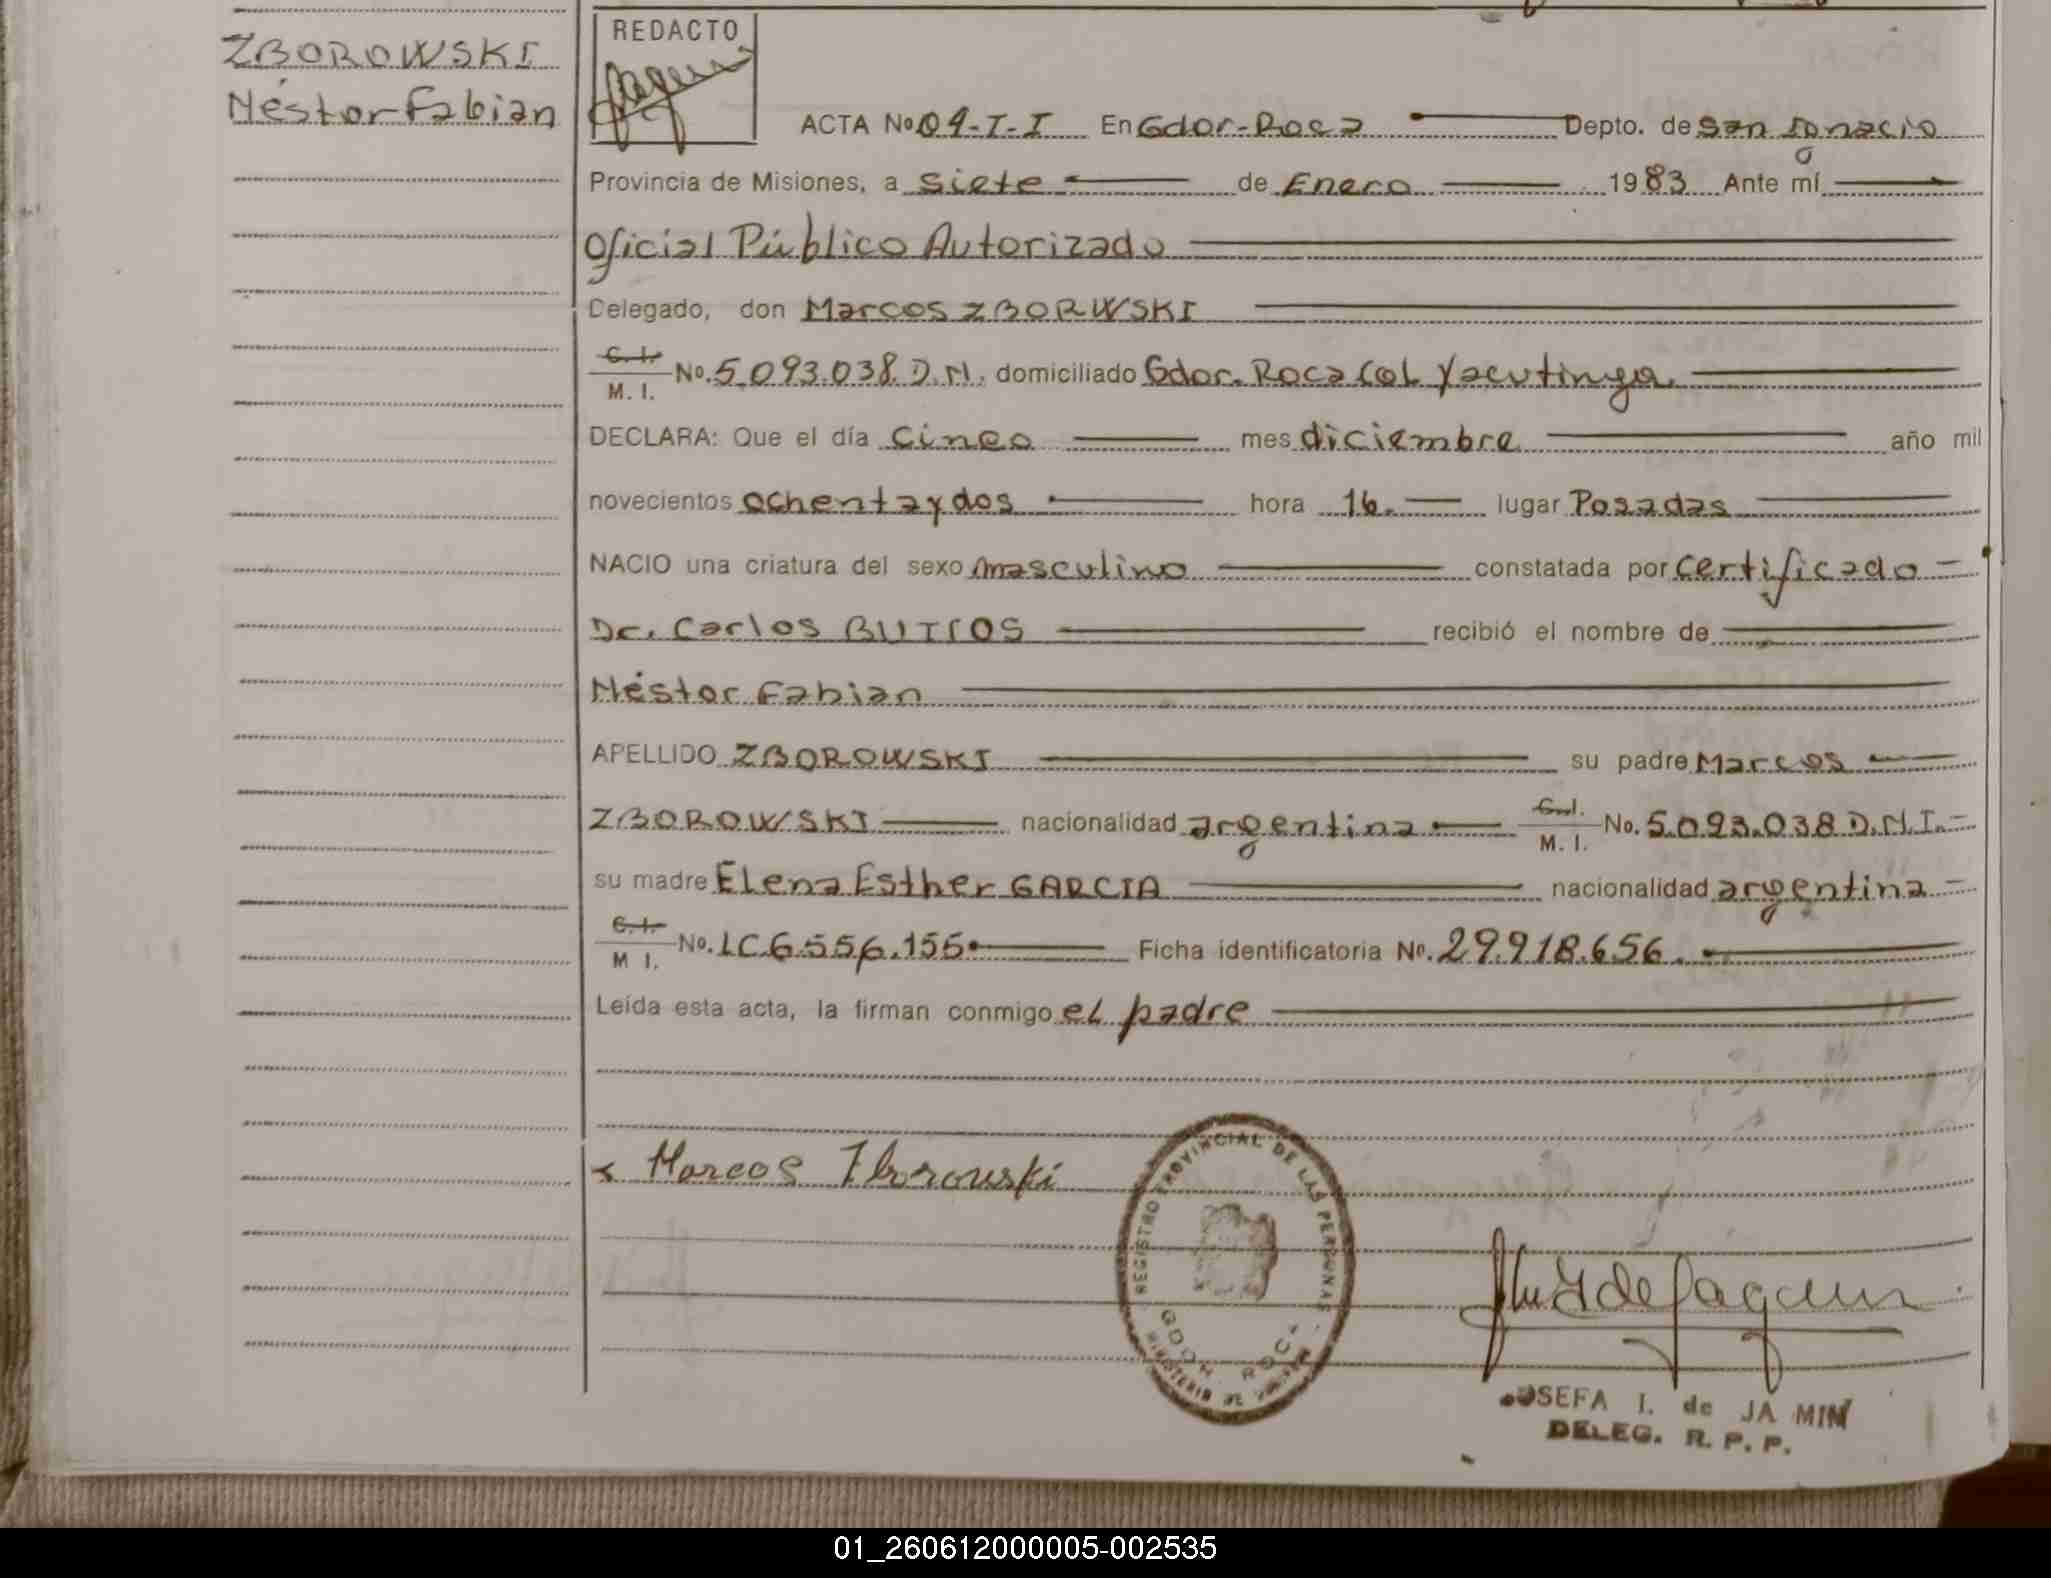 ZBOROWSKI
Néstor Fabian
REDACTO
ACTA No 04-I-I En Gdor-Roca Depto. de San Ignacio
Provincia de Misiones, a siete de Enero 1983 Ante mí
Oficial Público Autorizado
Delegado, don Marcos ZBORWSKI
C. I.
M. I. No. 5.093.038 D.N. domiciliado Gdor. Roca Col Yacutinga
DECLARA: Que el día cinco mes diciembre año mil
novecientos ochentaydos hora 16. lugar Posadas
NACIO una criatura del sexo masculino constatada por certificado
Dr. Carlos BUTTOS recibió el nombre de
Néstor Fabian
APELLIDO ZBOROWSKI su padre Marcos
ZBOROWSKI nacionalidad argentina C.I. M. I. No. 5.093.038 D.N.I.
su madre Elena Esther GARCIA nacionalidad argentina
C.I.
M I. No. LC 6.556.155 Ficha identificatoria No. 29.918.656.
Leída esta acta, la firman conmigo el padre
Marcos Zborowski
REGISTRO PROVINCIAL DE LAS PERSONAS
GDOR. ROCA
MINISTERIO DE
JOSEFA I. de JA MIN
DELEG. R. P. P.
01_260612000005-002535